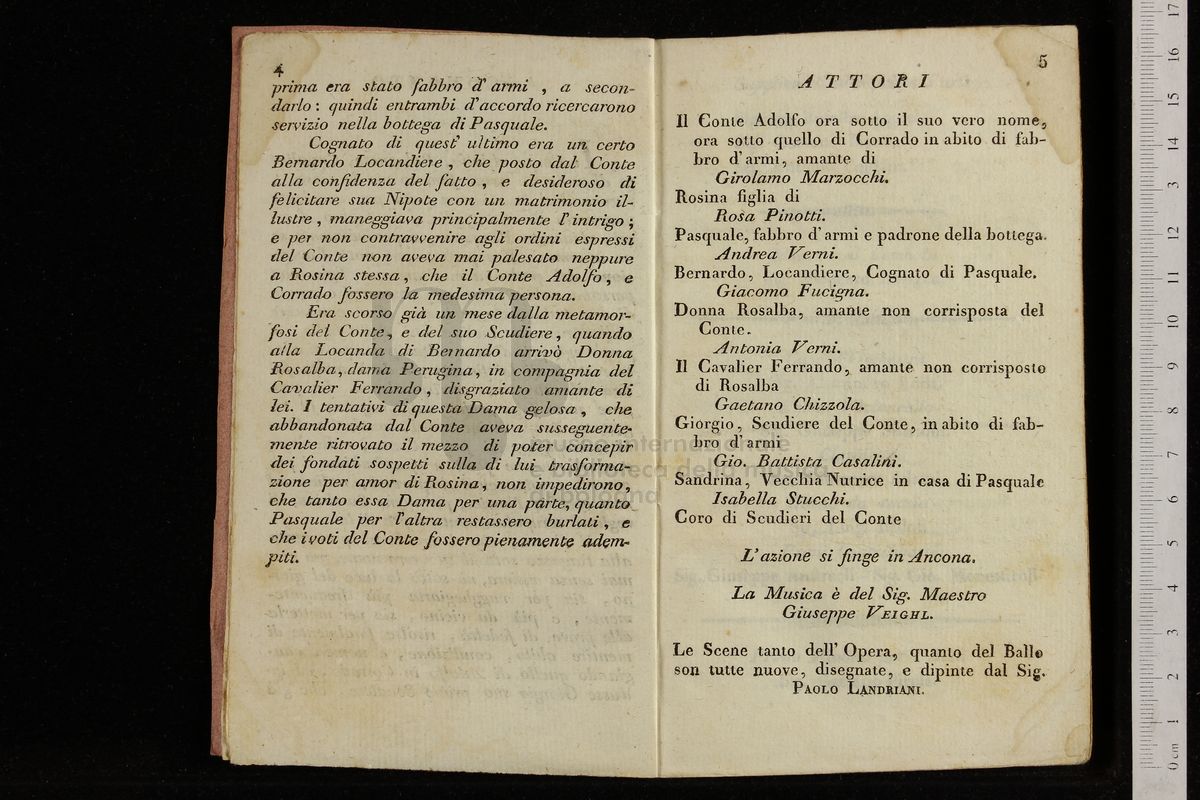 4
prima era stato fabbro d' armi , a secon-
darlo : quindi entrambi d'accordo ricercarono
servizio nella bottega di Pasquale.
Cognato di quest' ultimo era un certo
Bernardo Locandiere , che posto dal Conte
alla confidenza del fatto , e desideroso di
felicitare sua Nipote con un matrimonio il-
lustre , maneggiava principalmente l' intrigo ;
e per non contravvenire agli ordini espressi
del Conte non aveva mai palesato neppure
a Rosina stessa , che il Conte Adolfo , e
Corrado fossero la medesima persona.
Era scorso già un mese dalla metamor-
fosi del Conte , e del suo Scudiere , quando
alla Locanda di Bernardo arrivò Donna
Rosalba, dama Perugina, in compagnia del
Cavalier Ferrando , disgraziato amante di
lei. I tentativi di questa Dama gelosa , che
abbandonata dal Conte aveva susseguente-
mente ritrovato il mezzo di poter concepir
dei fondati sospetti sulla di lui trasforma-
zione per amor di Rosina, non impedirono,
che tanto essa Dama per una parte, quanto
Pasquale per l'altra restassero burlati , e
che i voti del Conte fossero pienamente adem-
piti.
5
ATTORI
Il Conte Adolfo ora sotto il suo vero nome,
ora sotto quello di Corrado in abito di fab-
bro d' armi, amante di
Girolamo Marzocchi.
Rosina figlia di
Rosa Pinotti.
Pasquale, fabbro d' armi e padrone della bottega.
Andrea Verni.
Bernardo, Locandiere, Cognato di Pasquale.
Giacomo Fucigna.
Donna Rosalba, amante non corrisposta del
Conte.
Antonia Verni.
Il Cavalier Ferrando, amante non corrisposto
di Rosalba
Gaetano Chizzola.
Giorgio, Scudiere del Conte, in abito di fab-
bro d' armi
Gio. Battista Casalini.
Sandrina, Vecchia Nutrice in casa di Pasquale
Isabella Stucchi.
Coro di Scudieri del Conte
L' azione si finge in Ancona.
La Musica è del Sig. Maestro
Giuseppe VEIGHL.
Le Scene tanto dell' Opera, quanto del Ballo
son tutte nuove, disegnate, e dipinte dal Sig.
PAOLO LANDRIANI.
museo internazionale
e biblioteca della musica
di bologna
0 cm 1 2 3 4 5 6 7 8 9 10 11 12 13 14 15 16 17